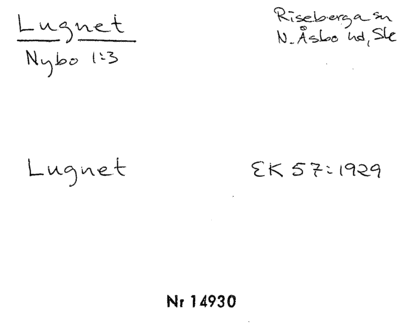 Lugnet
Nybo 1:3
Riseberga sn
N. Åsbo hd, Sk
Lugnet
EK 57:1929
Nr 14930